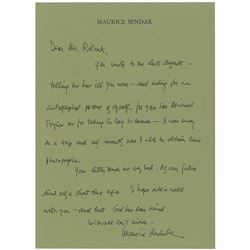 MAURICE SENDAK
Dear Mr.
You wrote to me last August —
telling me how ill you were — and asking for an
autographed picture of myself for your son Michael.
Forgive me for taking so long to answer — I was away
on a trip and only recently was I able to obtain these
photographs.
Your letter made me very sad. My own father
died only a short time ago. I hope all is well
with you — and that God has been kind.
With all best wishes,
Maurice Sendak